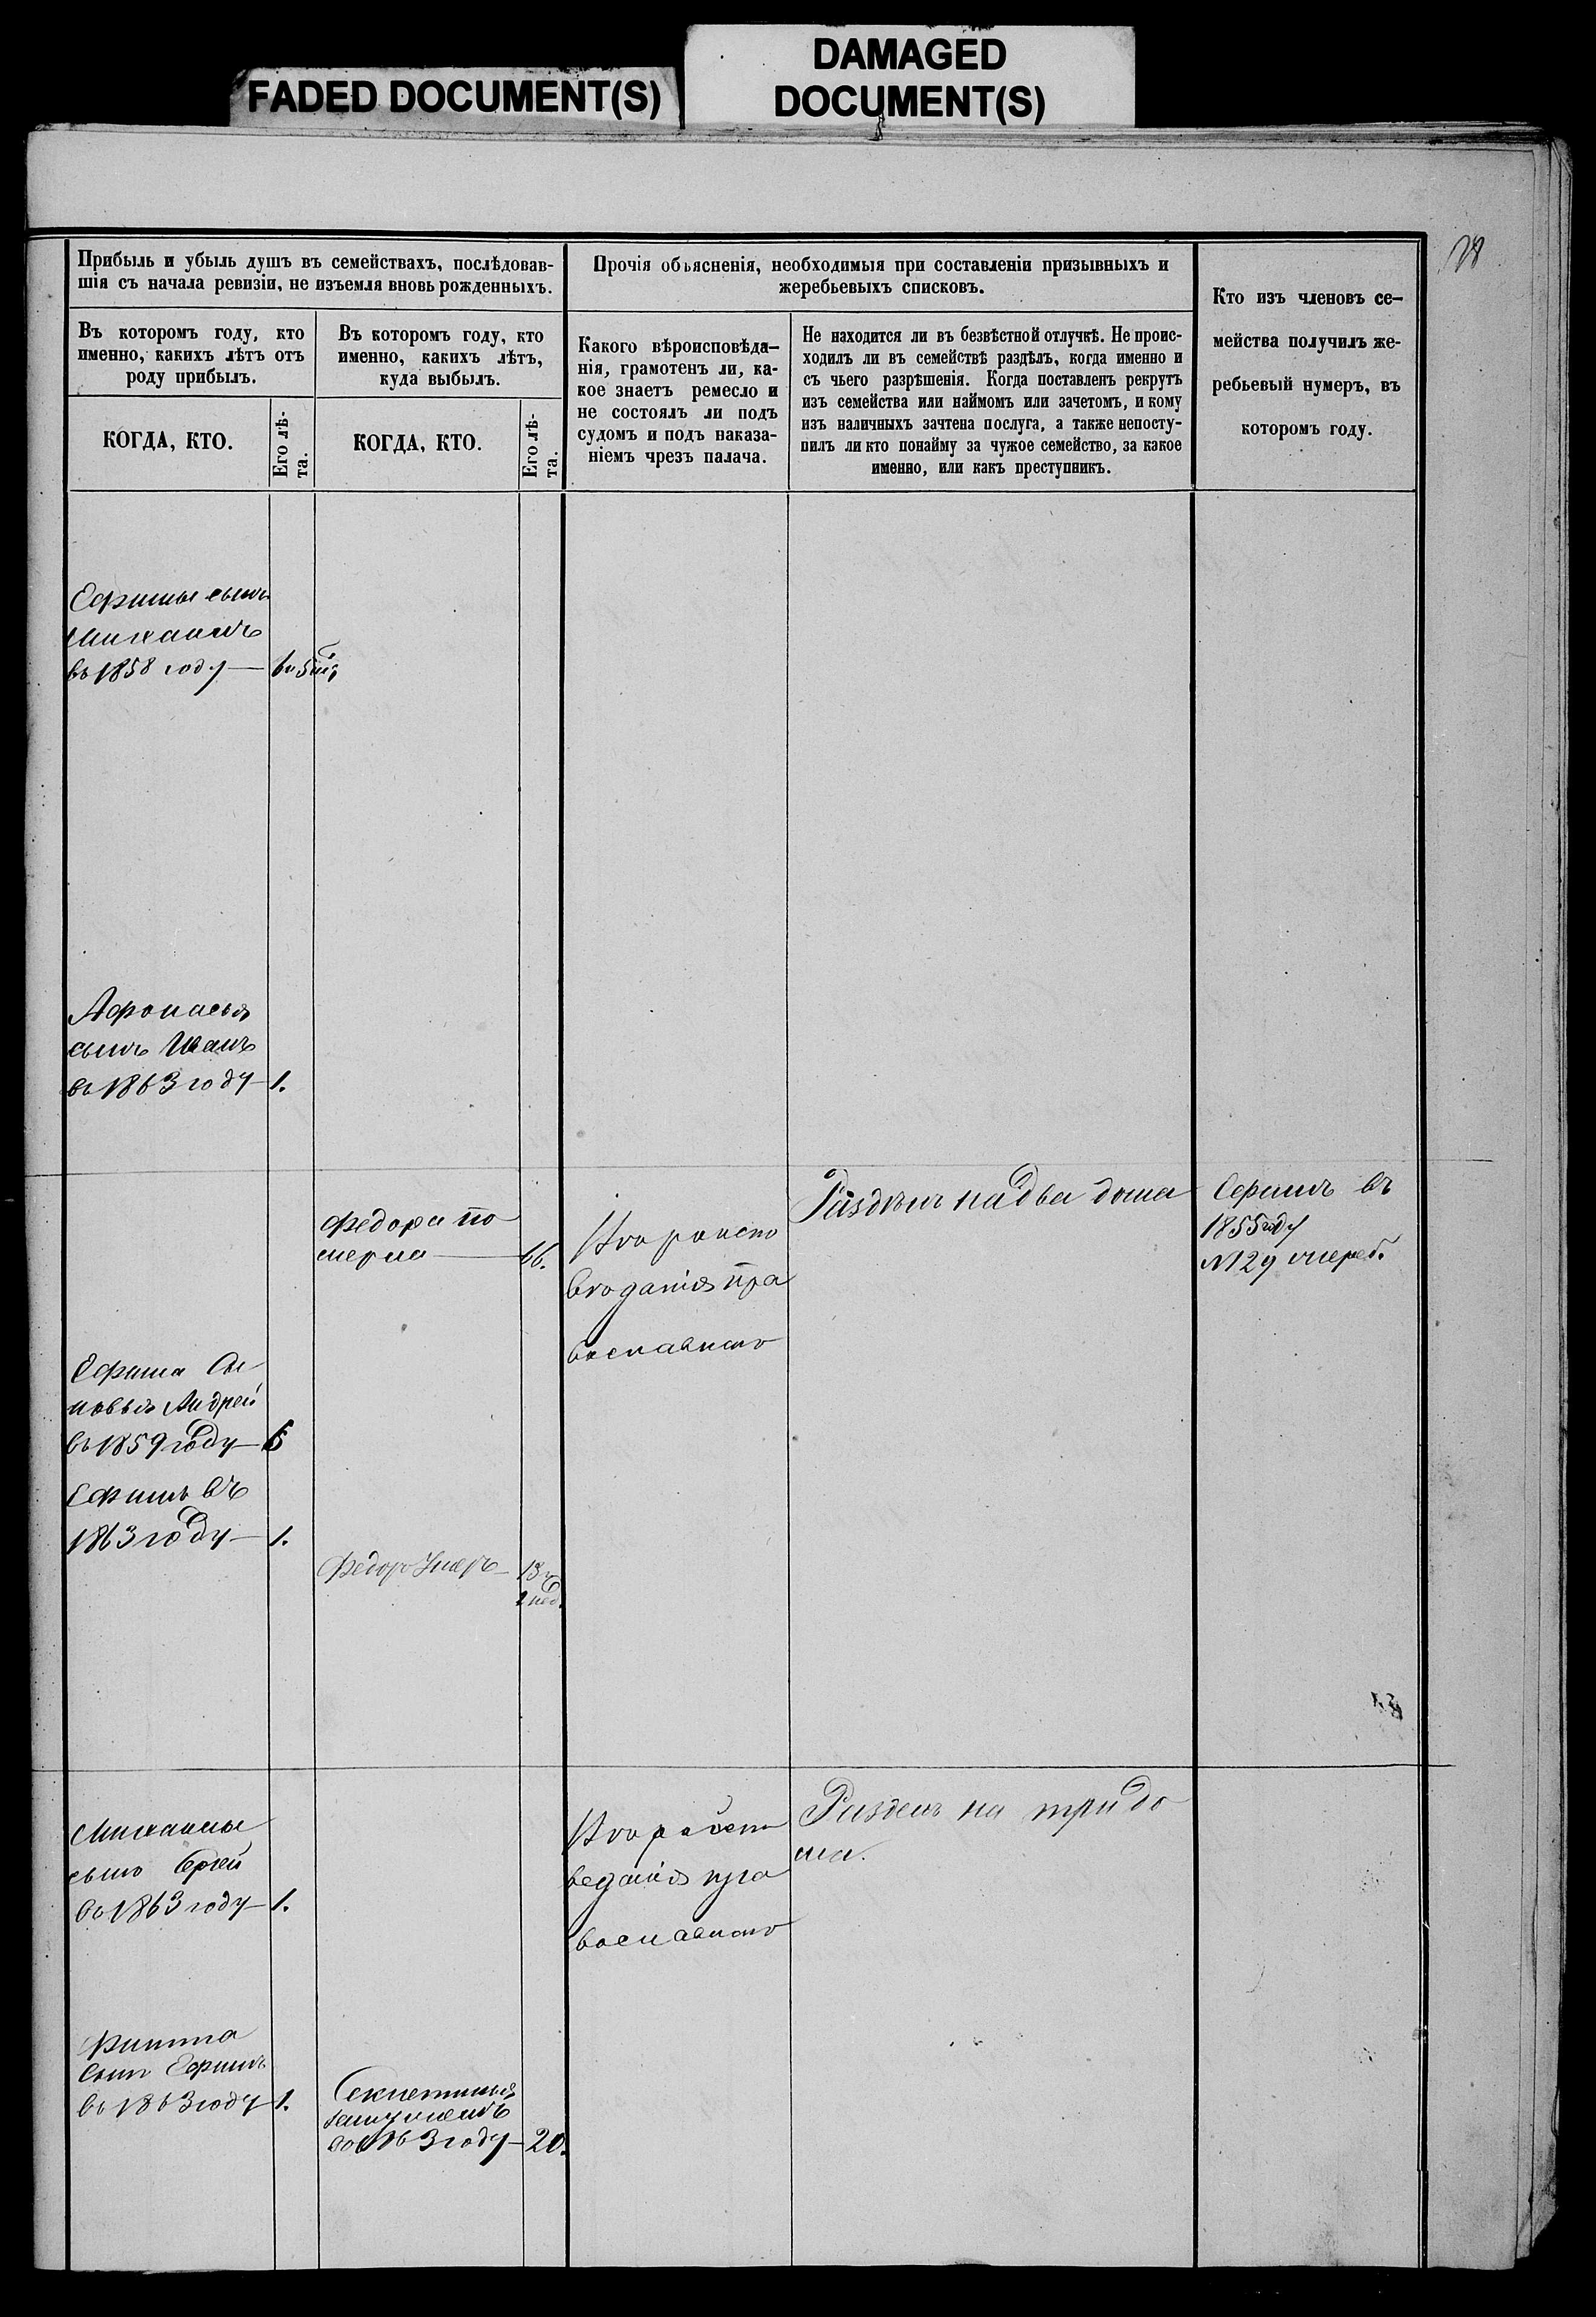 FADED DOCUMENT(S)
DAMAGED
DOCUMENT(S)
Прибыль и убыль душъ въ семействахъ, послѣдовав-
шія съ начала ревизіи, не изъемля вновь рожденныхъ.
Въ которомъ году, кто
именно, какихъ лѣтъ отъ
роду прибылъ.
КОГДА, КТО.
Его лѣ-
та.
Въ которомъ году, кто
именно, какихъ лѣтъ,
куда выбылъ.
КОГДА, КТО.
Его лѣ-
та.
Прочія объясненія, необходимыя при составленіи призывныхъ и
жеребьевыхъ списковъ.
Какого вѣроисповѣда-
нія, грамотенъ ли, ка-
кое знаетъ ремесло и
не состоялъ ли подъ
судомъ и подъ наказа-
ніемъ чрезъ палача.
Не находится ли въ безвѣстной отлучкѣ. Не проис-
ходилъ ли въ семействѣ раздѣлъ, когда именно и
съ чьего разрѣшенія. Когда поставленъ рекрутъ
изъ семейства или наймомъ или зачетомъ, и кому
изъ наличныхъ зачтена послуга, а также непосту-
пилъ ли кто понайму за чужое семейство, за какое
именно, или какъ преступникъ.
Кто изъ членовъ се-
мейства получилъ же-
ребьевый нумеръ, въ
которомъ году.
Ефимы сынъ
Михаилъ
въ 1858 году —
Афонасья
сынъ Иванъ
въ 1863 году — 1.
Федора по
мерла — 66.
Раздѣлъ на два дома
Ефимъ въ
1855 году
№ 29
православнаго
Ефима Сы
новья Андрей
въ 1859 году —
Ефимъ въ
1863 году — 1.
Федоръ Умеръ —
2 нед.
Михаилы
сынъ Сергей
во 1863 году — 1.
вославнаго
Разделъ на три до
ма.
сынъ Ефимъ
въ 1863 году — 1.
замужемъ
во 1863 году — 20.